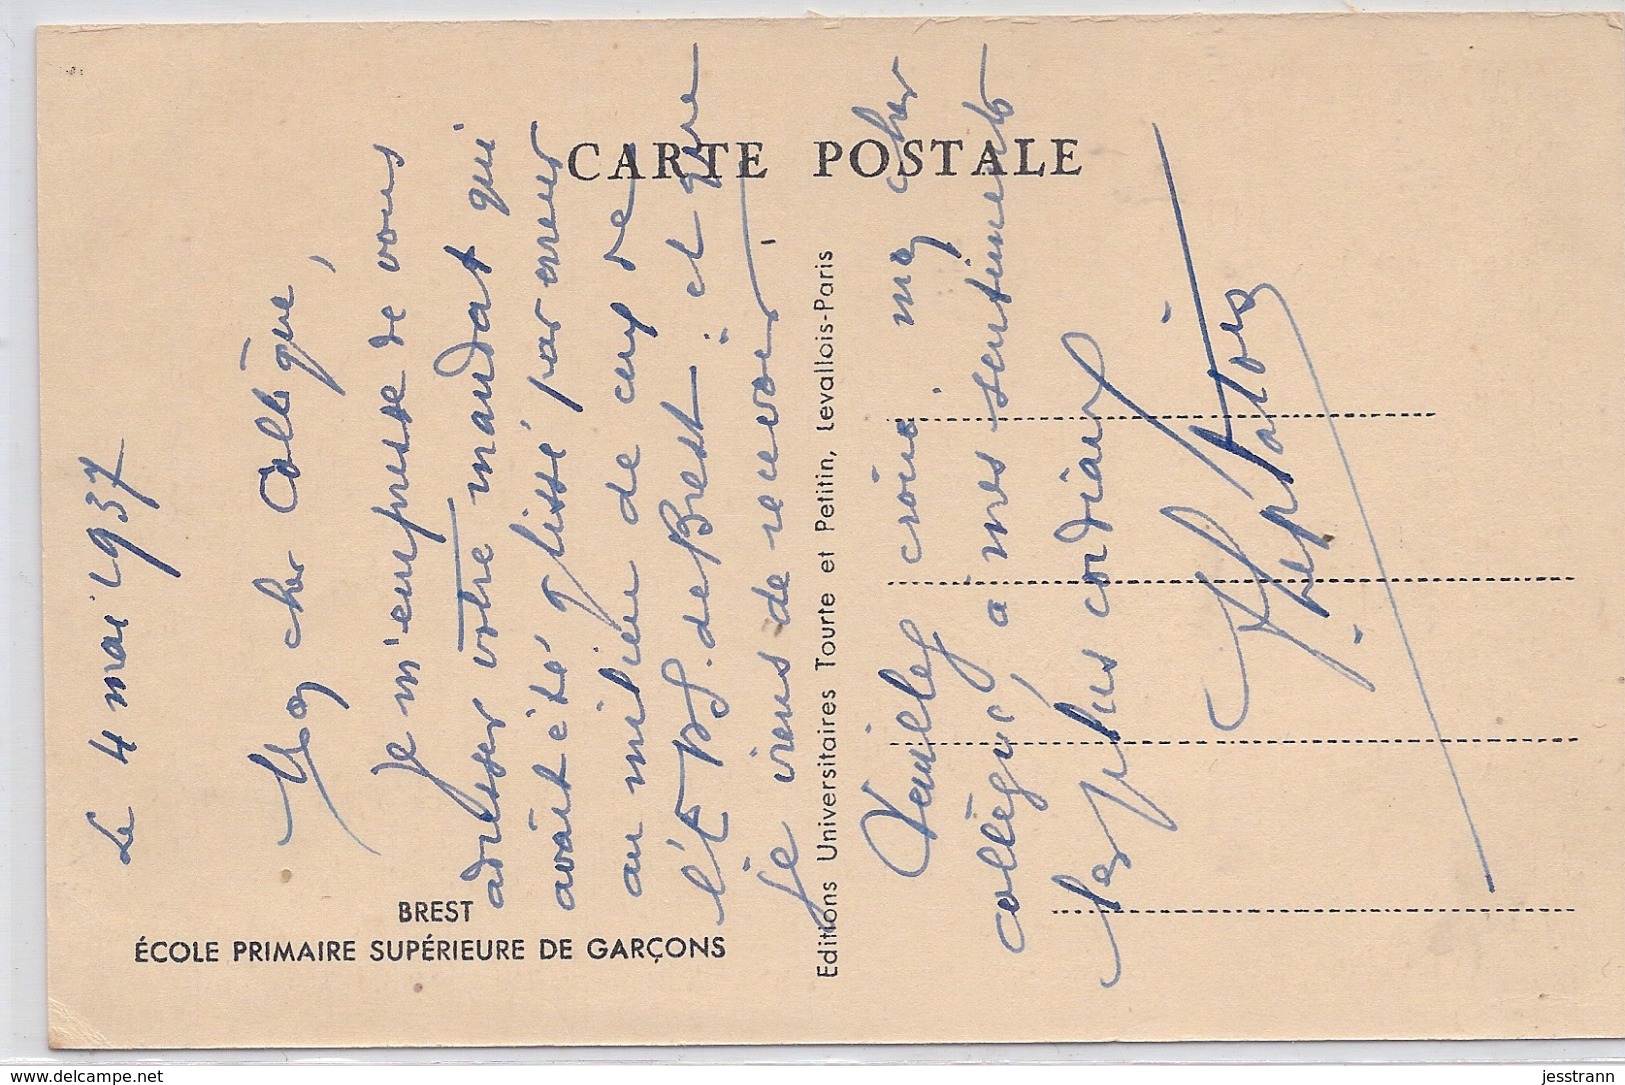 CARTE POSTALE
Le 4 mai 1937
Mon cher Collègue,
Je m'empresse de vous
adresser votre mandat qui
avait été glissé par erreur
au milieu de ceux de
l'E P S. de Brest et que
je viens de recevoir.
Veuillez croire mon cher
collègue, à mes sentiments
les plus cordiaux
BREST
ÉCOLE PRIMAIRE SUPÉRIEURE DE GARÇONS
Editions Universitaires Tourte et Petitin, Levallois-Paris
www.delcampe.net
jesstrann